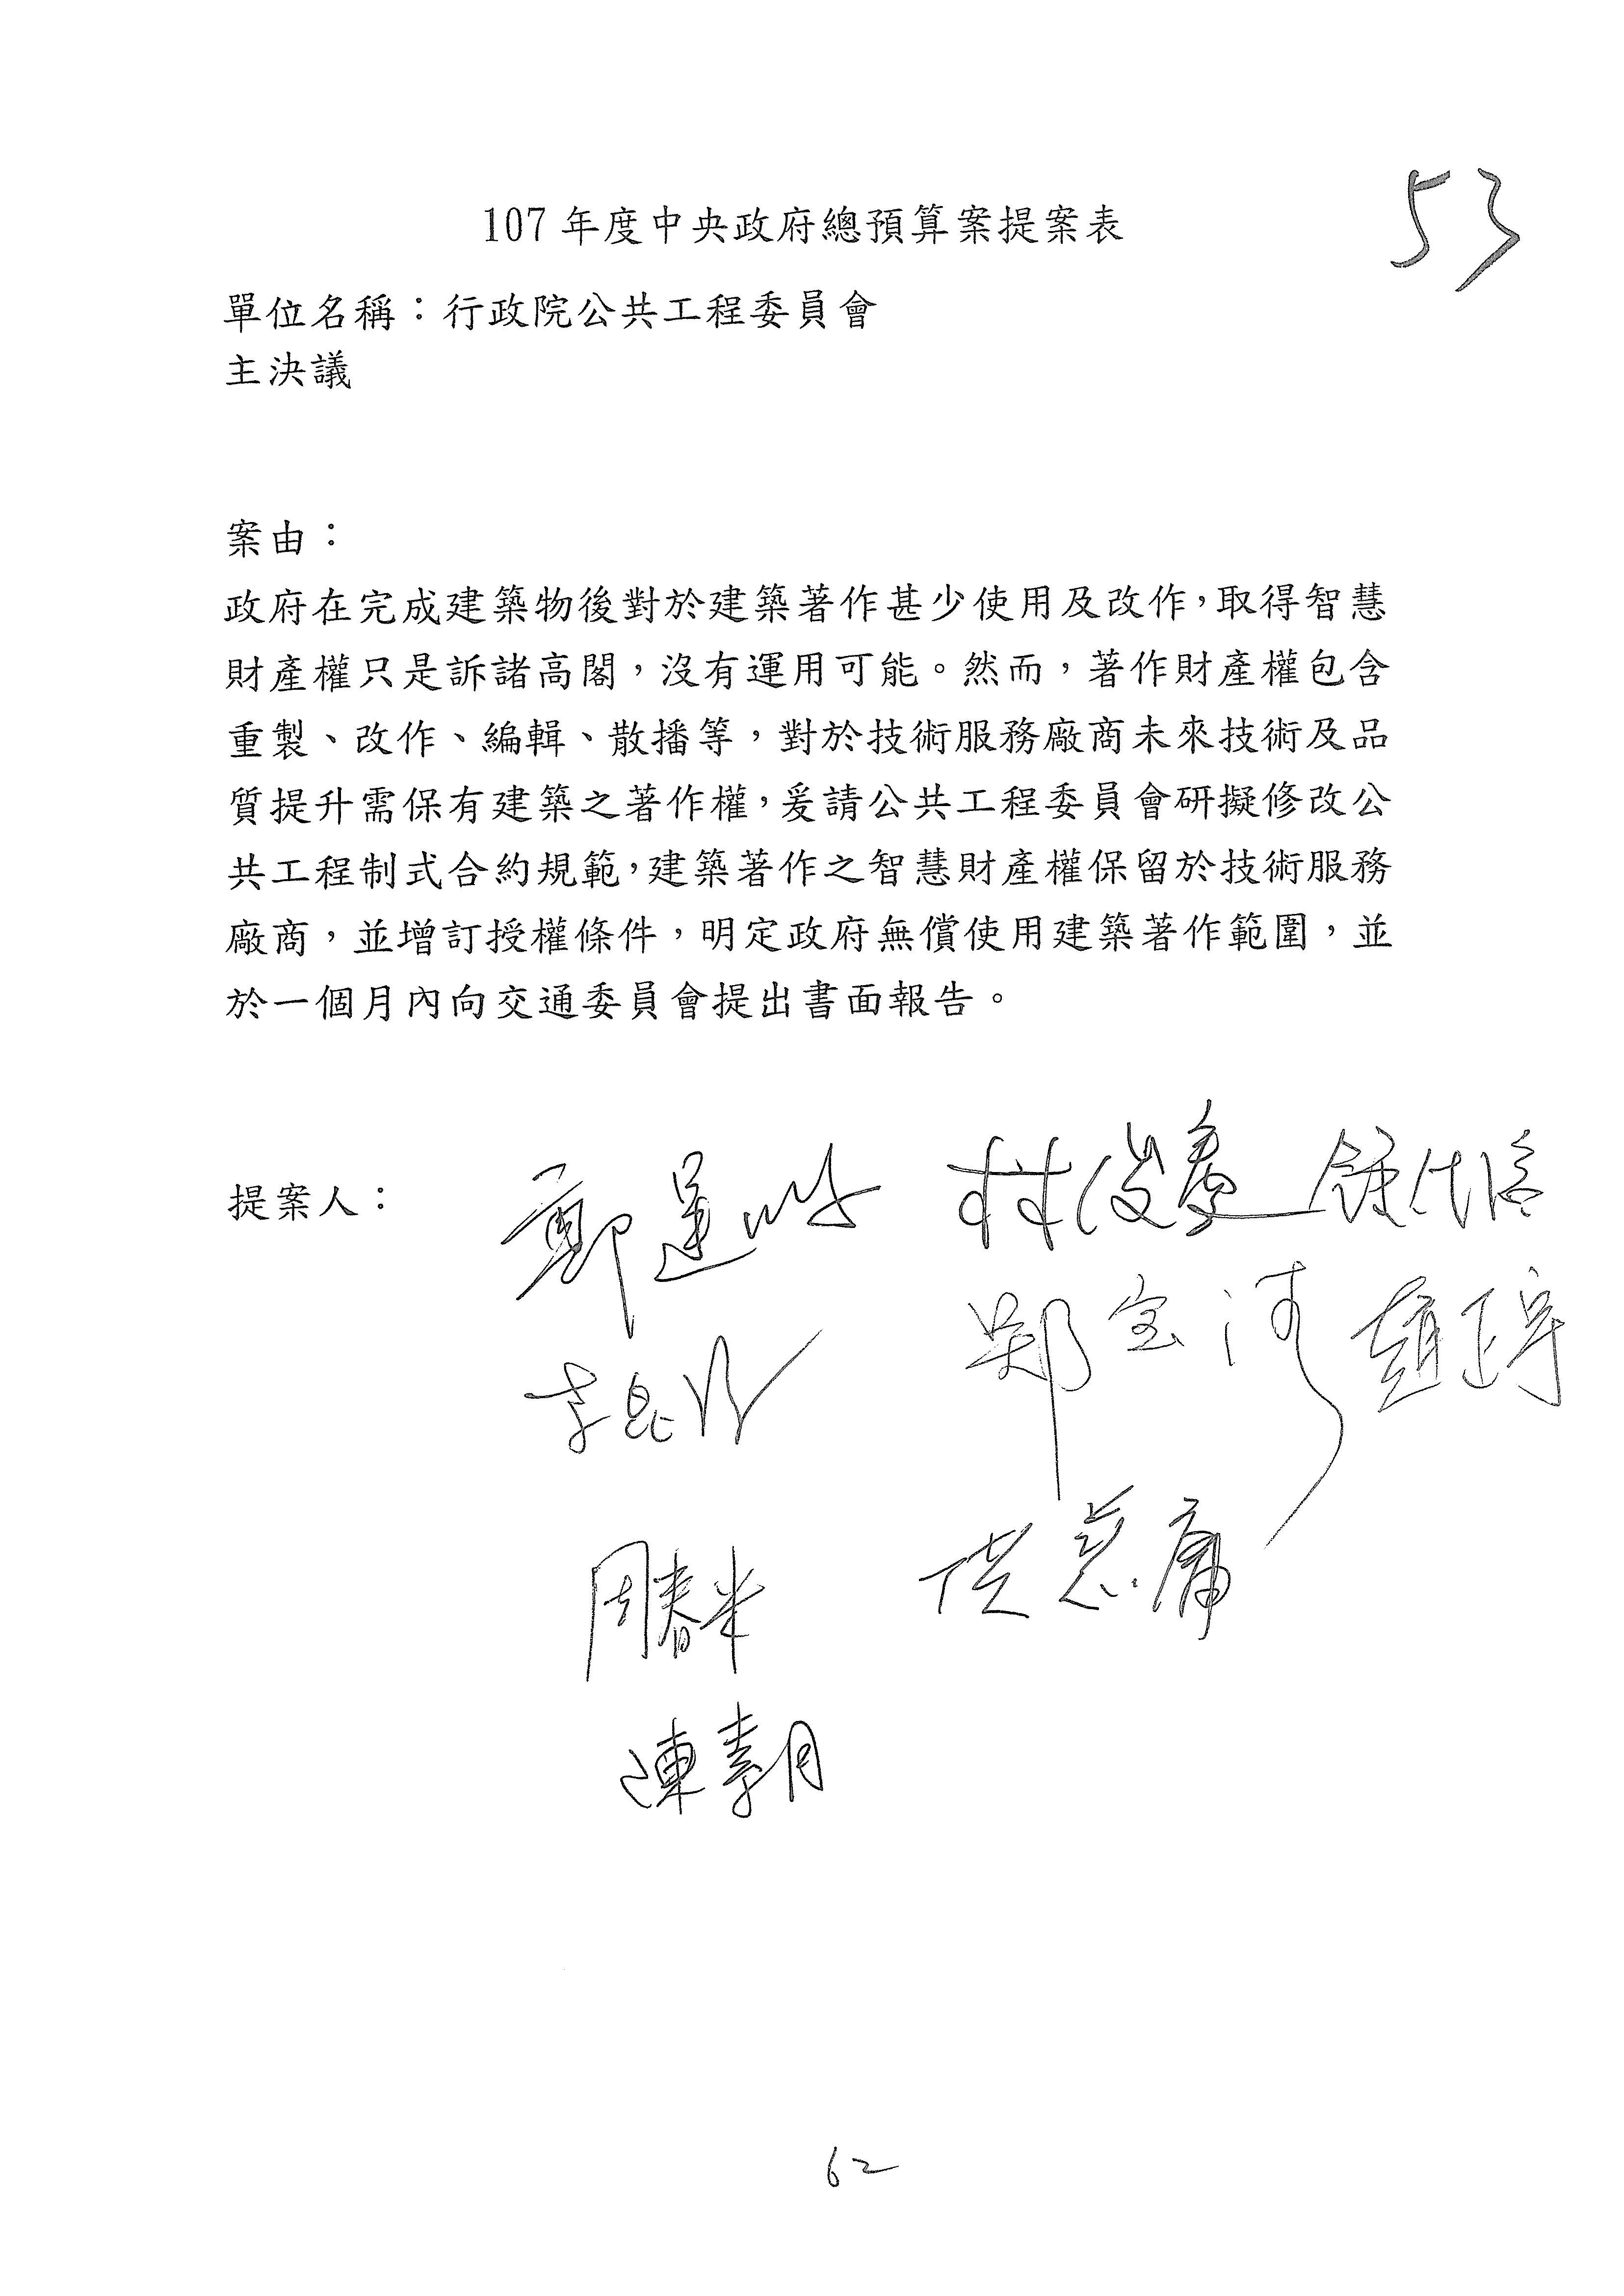 53
107年度中央政府總預算案提案表
單位名稱：行政院公共工程委員會
主決議
案由：
政府在完成建築物後對於建築著作甚少使用及改作，取得智慧
財產權只是訴諸高閣，沒有運用可能。然而，著作財產權包含
重製、改作、編輯、散播等，對於技術服務廠商未來技術及品
質提升需保有建築之著作權，爰請公共工程委員會研擬修改公
共工程制式合約規範，建築著作之智慧財產權保留於技術服務
廠商，並增訂授權條件，明定政府無償使用建築著作範圍，並
於一個月內向交通委員會提出書面報告。
提案人：
鄭運鵬 林俊憲
李昆澤 鄭宝清 趙正宇
周春米 洪慈庸
陳素月
62